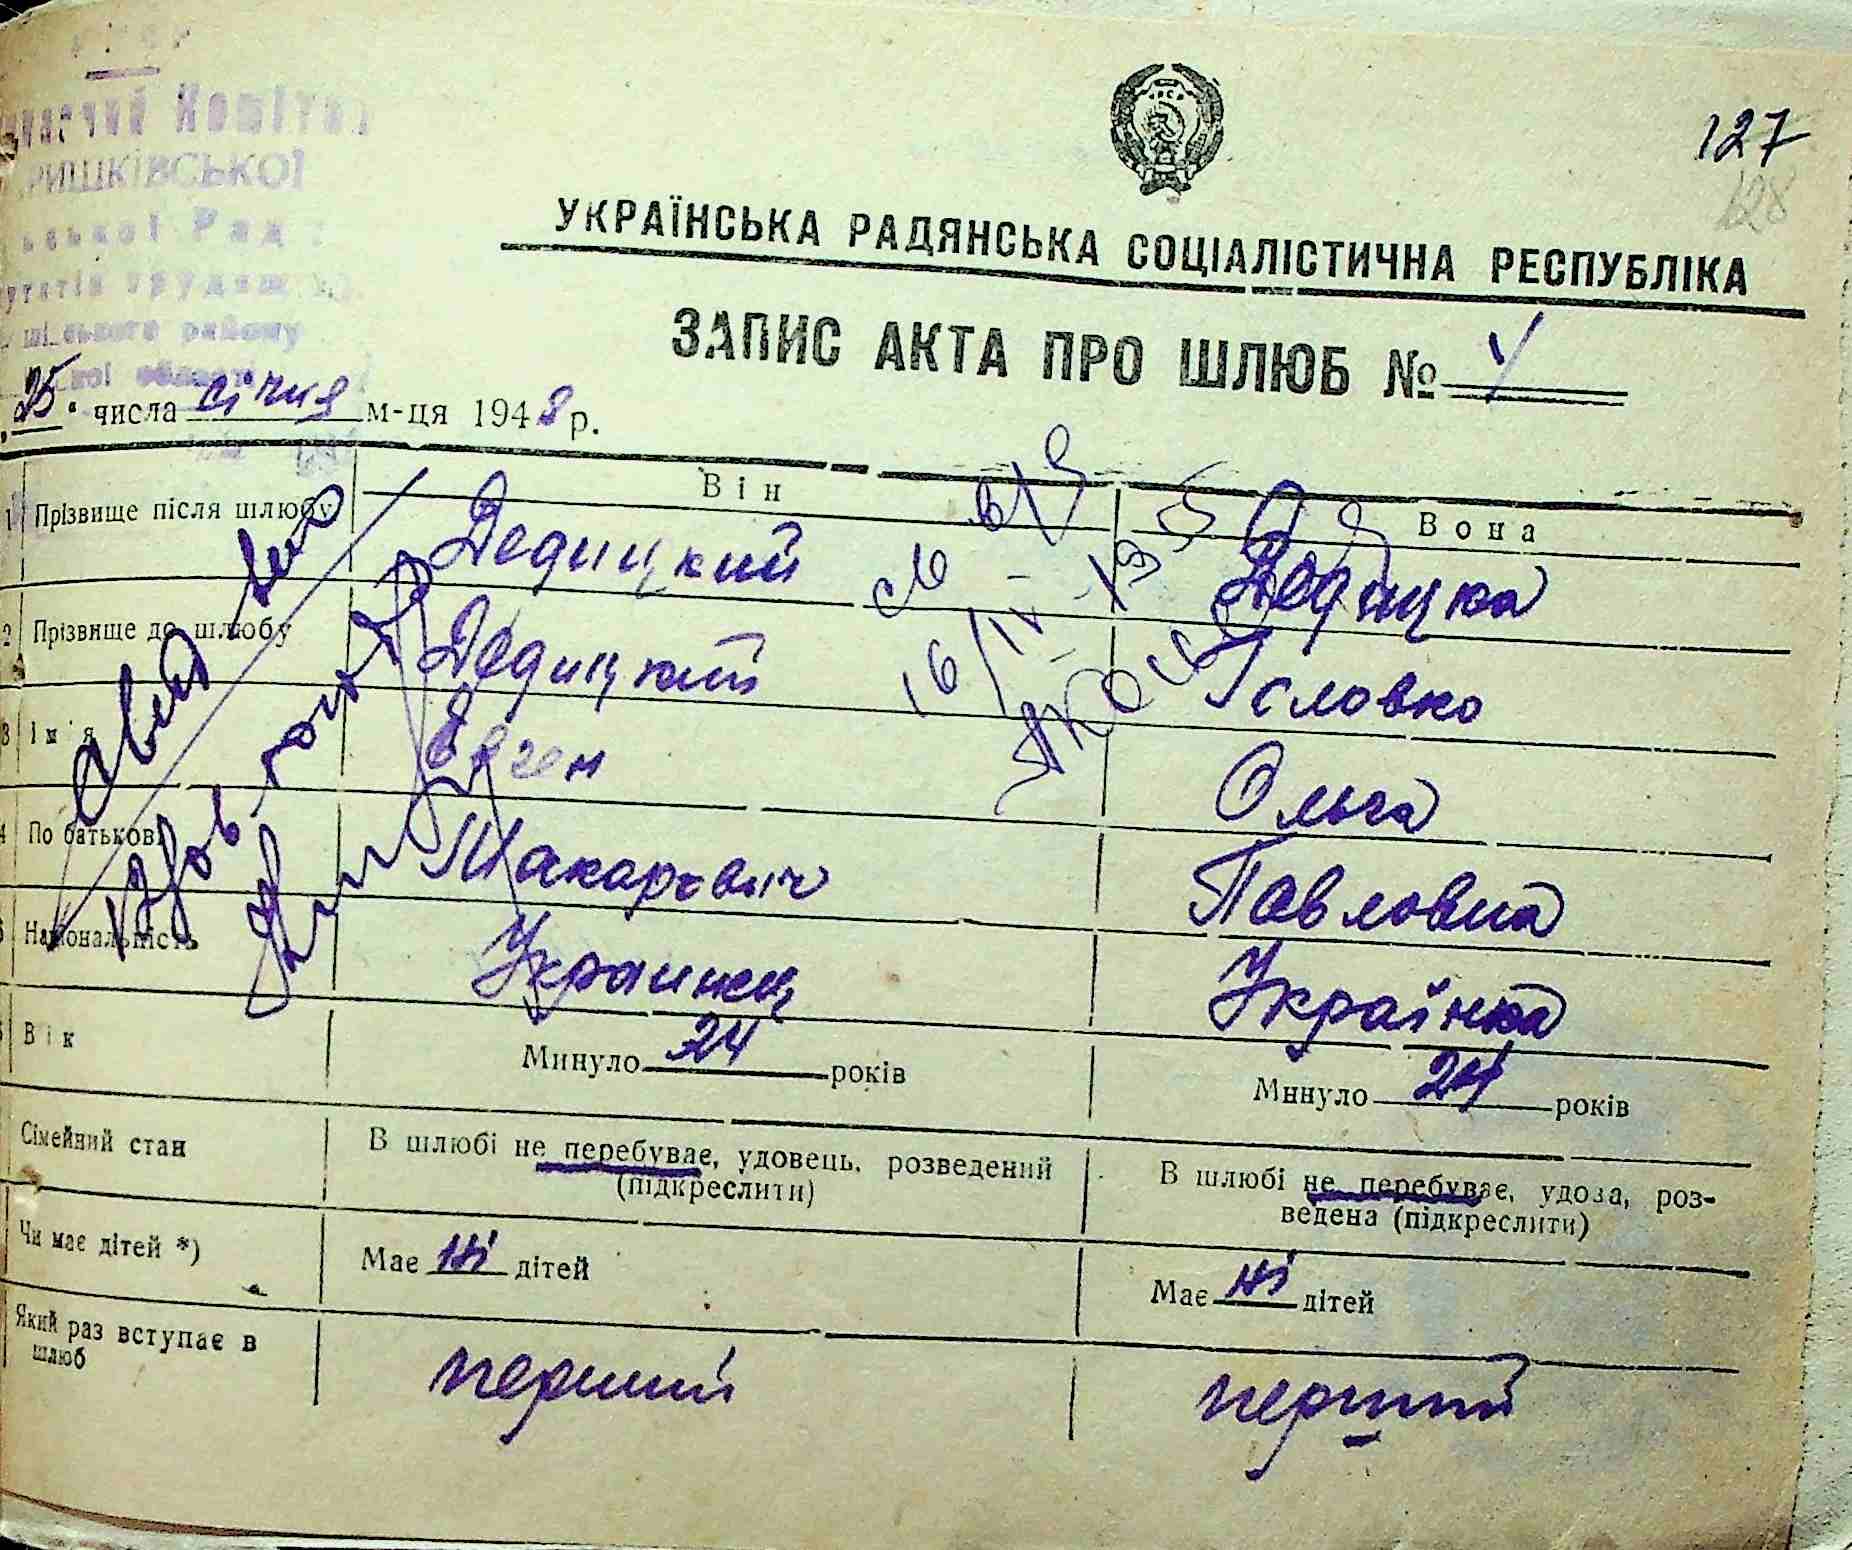 Комітет
РИШКІВСЬКОЇ
району
127
128
УКРАЇНСЬКА РАДЯНСЬКА СОЦІАЛІСТИЧНА РЕСПУБЛІКА
ЗАПИС АКТА ПРО ШЛЮБ №
25 числа січня м-ця 1948 р.
Він Вона
1 Прізвище після шлюбу Дедицкий Дедицка
2 Прізвище до шлюбу Дедицкий Гсловко
3 Ім'я Евген Ольга
4 По батькові Макарович Павловна
Національність Украинец Українка
Вік Минуло 24 років Минуло 24 років
Сімейний стан В шлюбі не перебуває, удовець, розведений (підкреслити) В шлюбі не перебуває, удова, роз-
ведена (підкреслити)
Чи має дітей *) Має ні дітей Має ні дітей
Який раз вступає в шлюб перший перший
16/IV-195